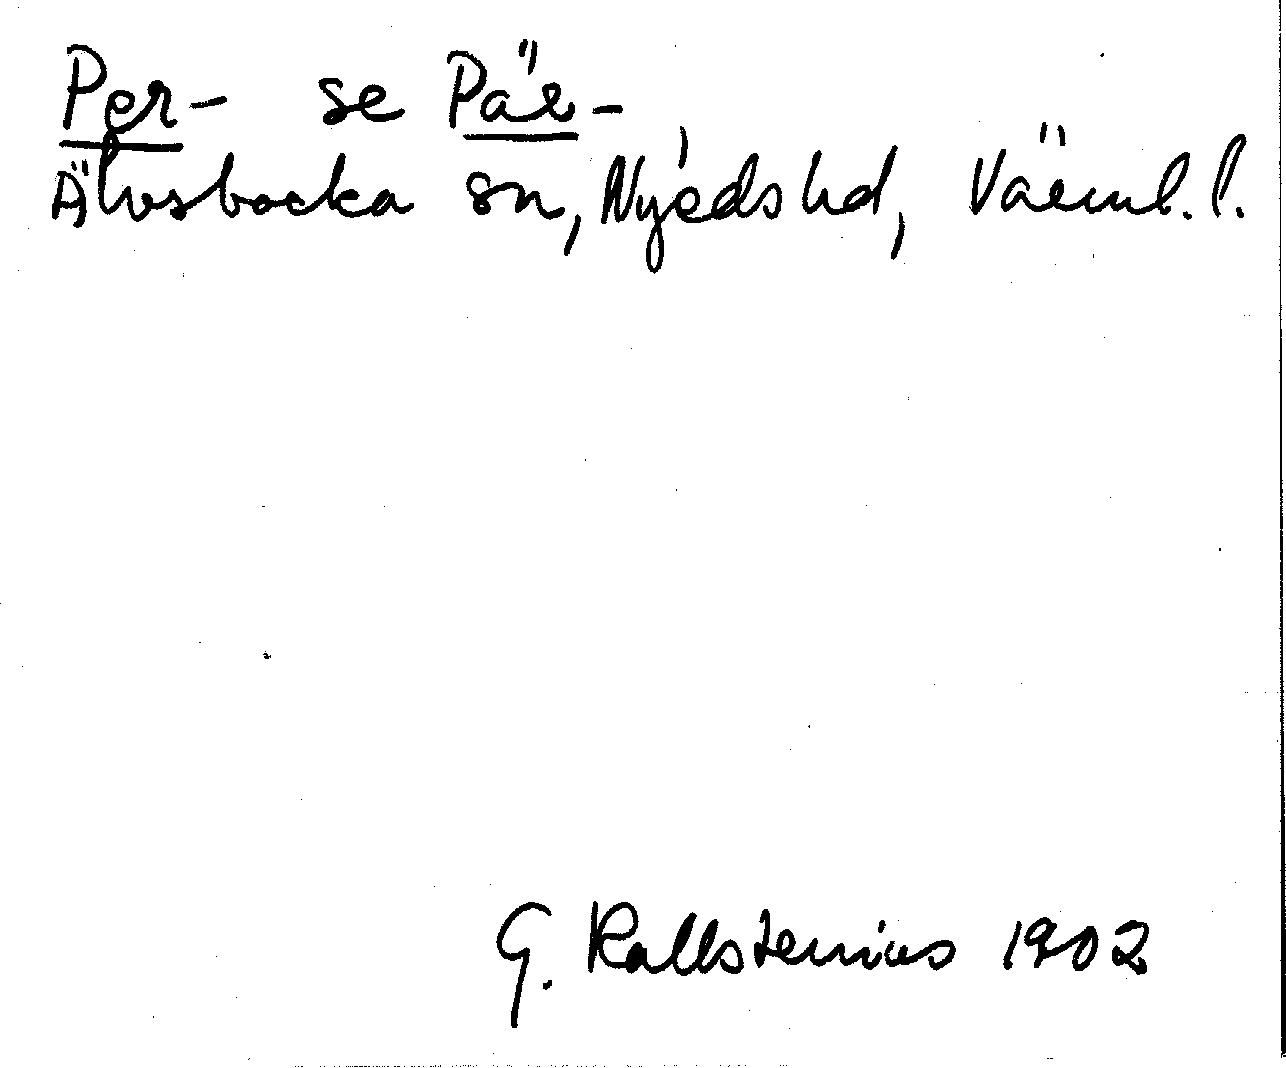 Per- se Pär-
Älvsbacka sn, Nyeds hd, Värml. l.
G. Kallstenius 1902